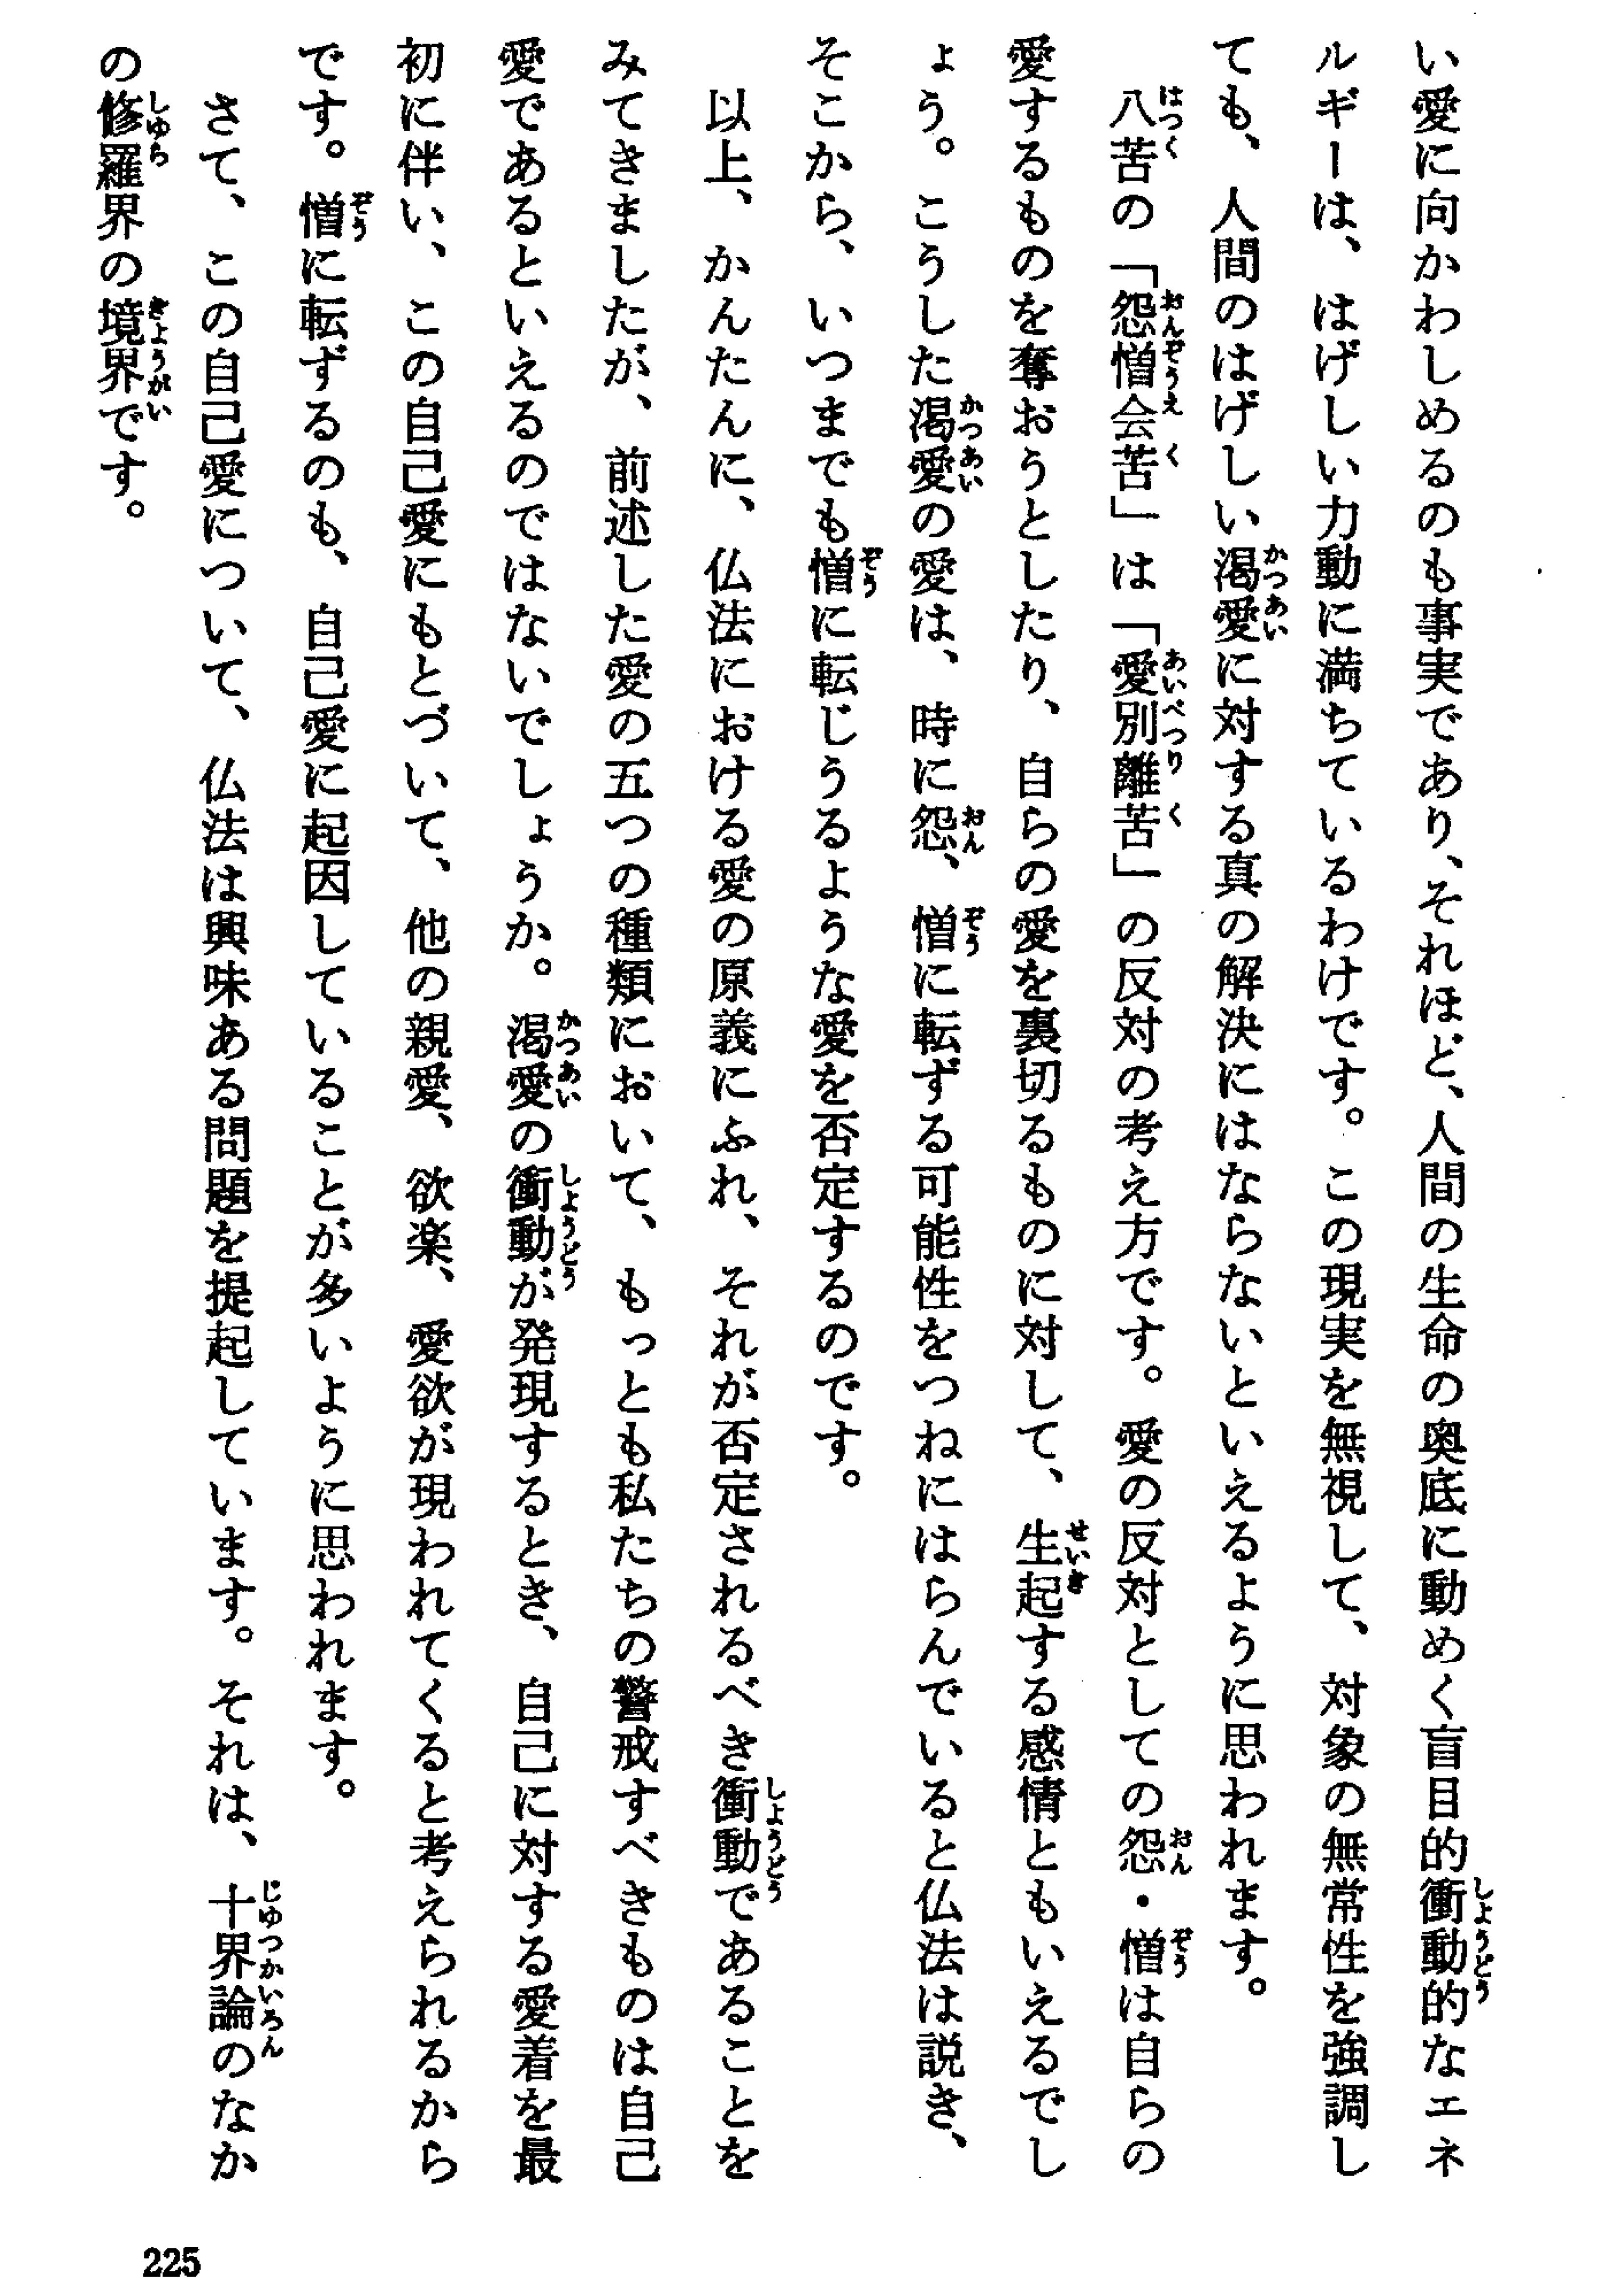 い愛に向かわしめるのも事実であり、それほど、人間の生命の奥底に動めく盲目的衝動的なエネ
ルギーは、はげしい力動に満ちているわけです。この現実を無視して、対象の無常性を強調し
ても、人間のはげしい渇愛に対する真の解決にはならないといえるように思われます。
八苦の「怨憎会苦」は「愛別離苦」の反対の考え方です。愛の反対としての怨・憎は自らの
愛するものを奪おうとしたり、自らの愛を裏切るものに対して、生起する感情ともいえるでし
ょう。こうした渇愛の愛は、時に怨、憎に転ずる可能性をつねにはらんでいると仏法は説き、
そこから、いつまでも憎に転じうるような愛を否定するのです。
以上、かんたんに、仏法における愛の原義にふれ、それが否定されるべき衝動であることを
みてきましたが、前述した愛の五つの種類において、もっとも私たちの警戒すべきものは自己
愛であるといえるのではないでしょうか。渇愛の衝動が発現するとき、自己に対する愛着を最
初に伴い、この自己愛にもとづいて、他の親愛、欲楽、愛欲が現われてくると考えられるから
です。憎に転ずるのも、自己愛に起因していることが多いように思われます。
さて、この自己愛について、仏法は興味ある問題を提起しています。それは、十界論のなか
の修羅界の境界です。
225